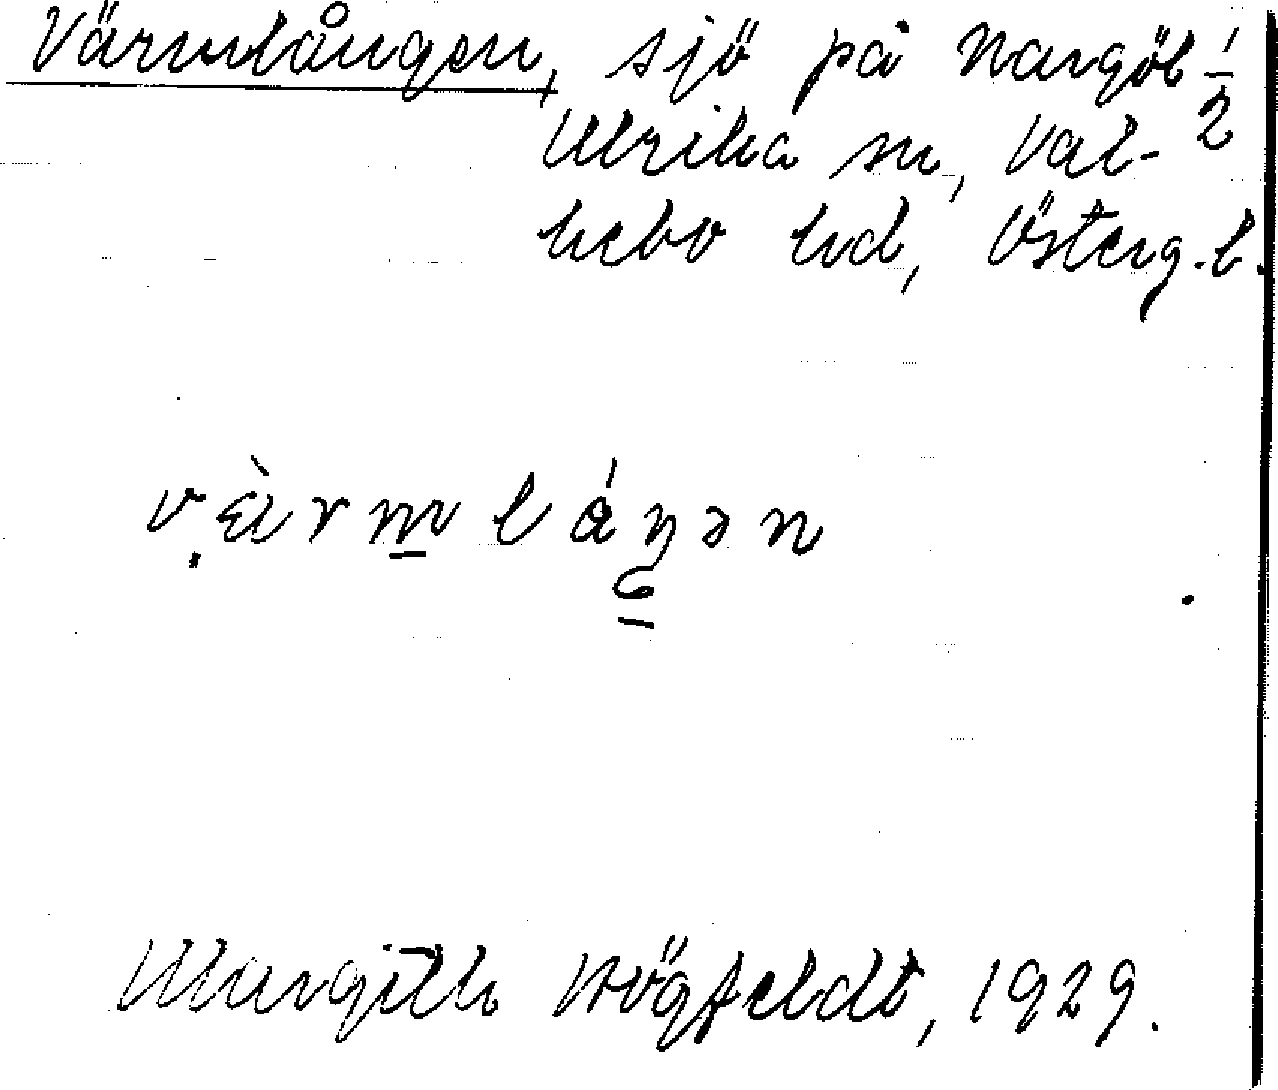 Värmlången, sjö på Nargöl 1/2
Ulrika sn, Val-
kebo hd, Österg.l.
Margith Högfeldt, 1929.